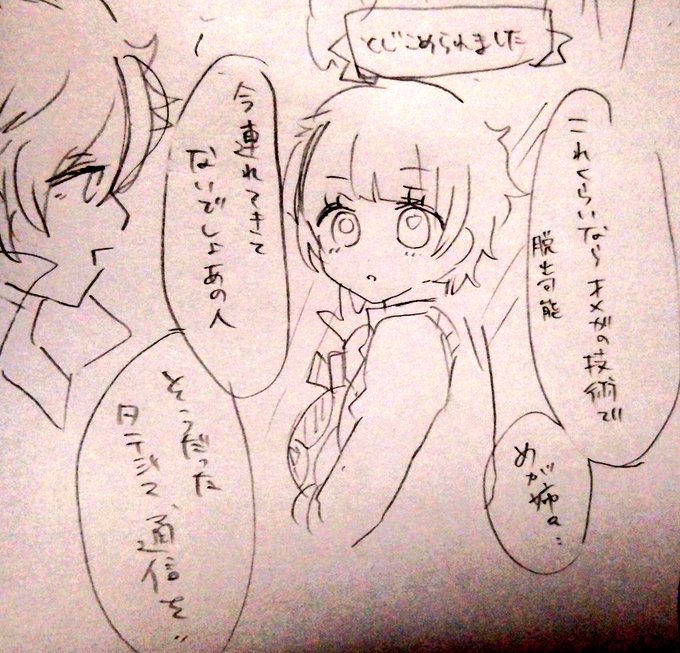 とじこめられました
これくらいなら
オメガの技術で
脱出可能
めが姉々…
今連れてきて
ないでしょあの人
そうだった
タテジマ、通信を…